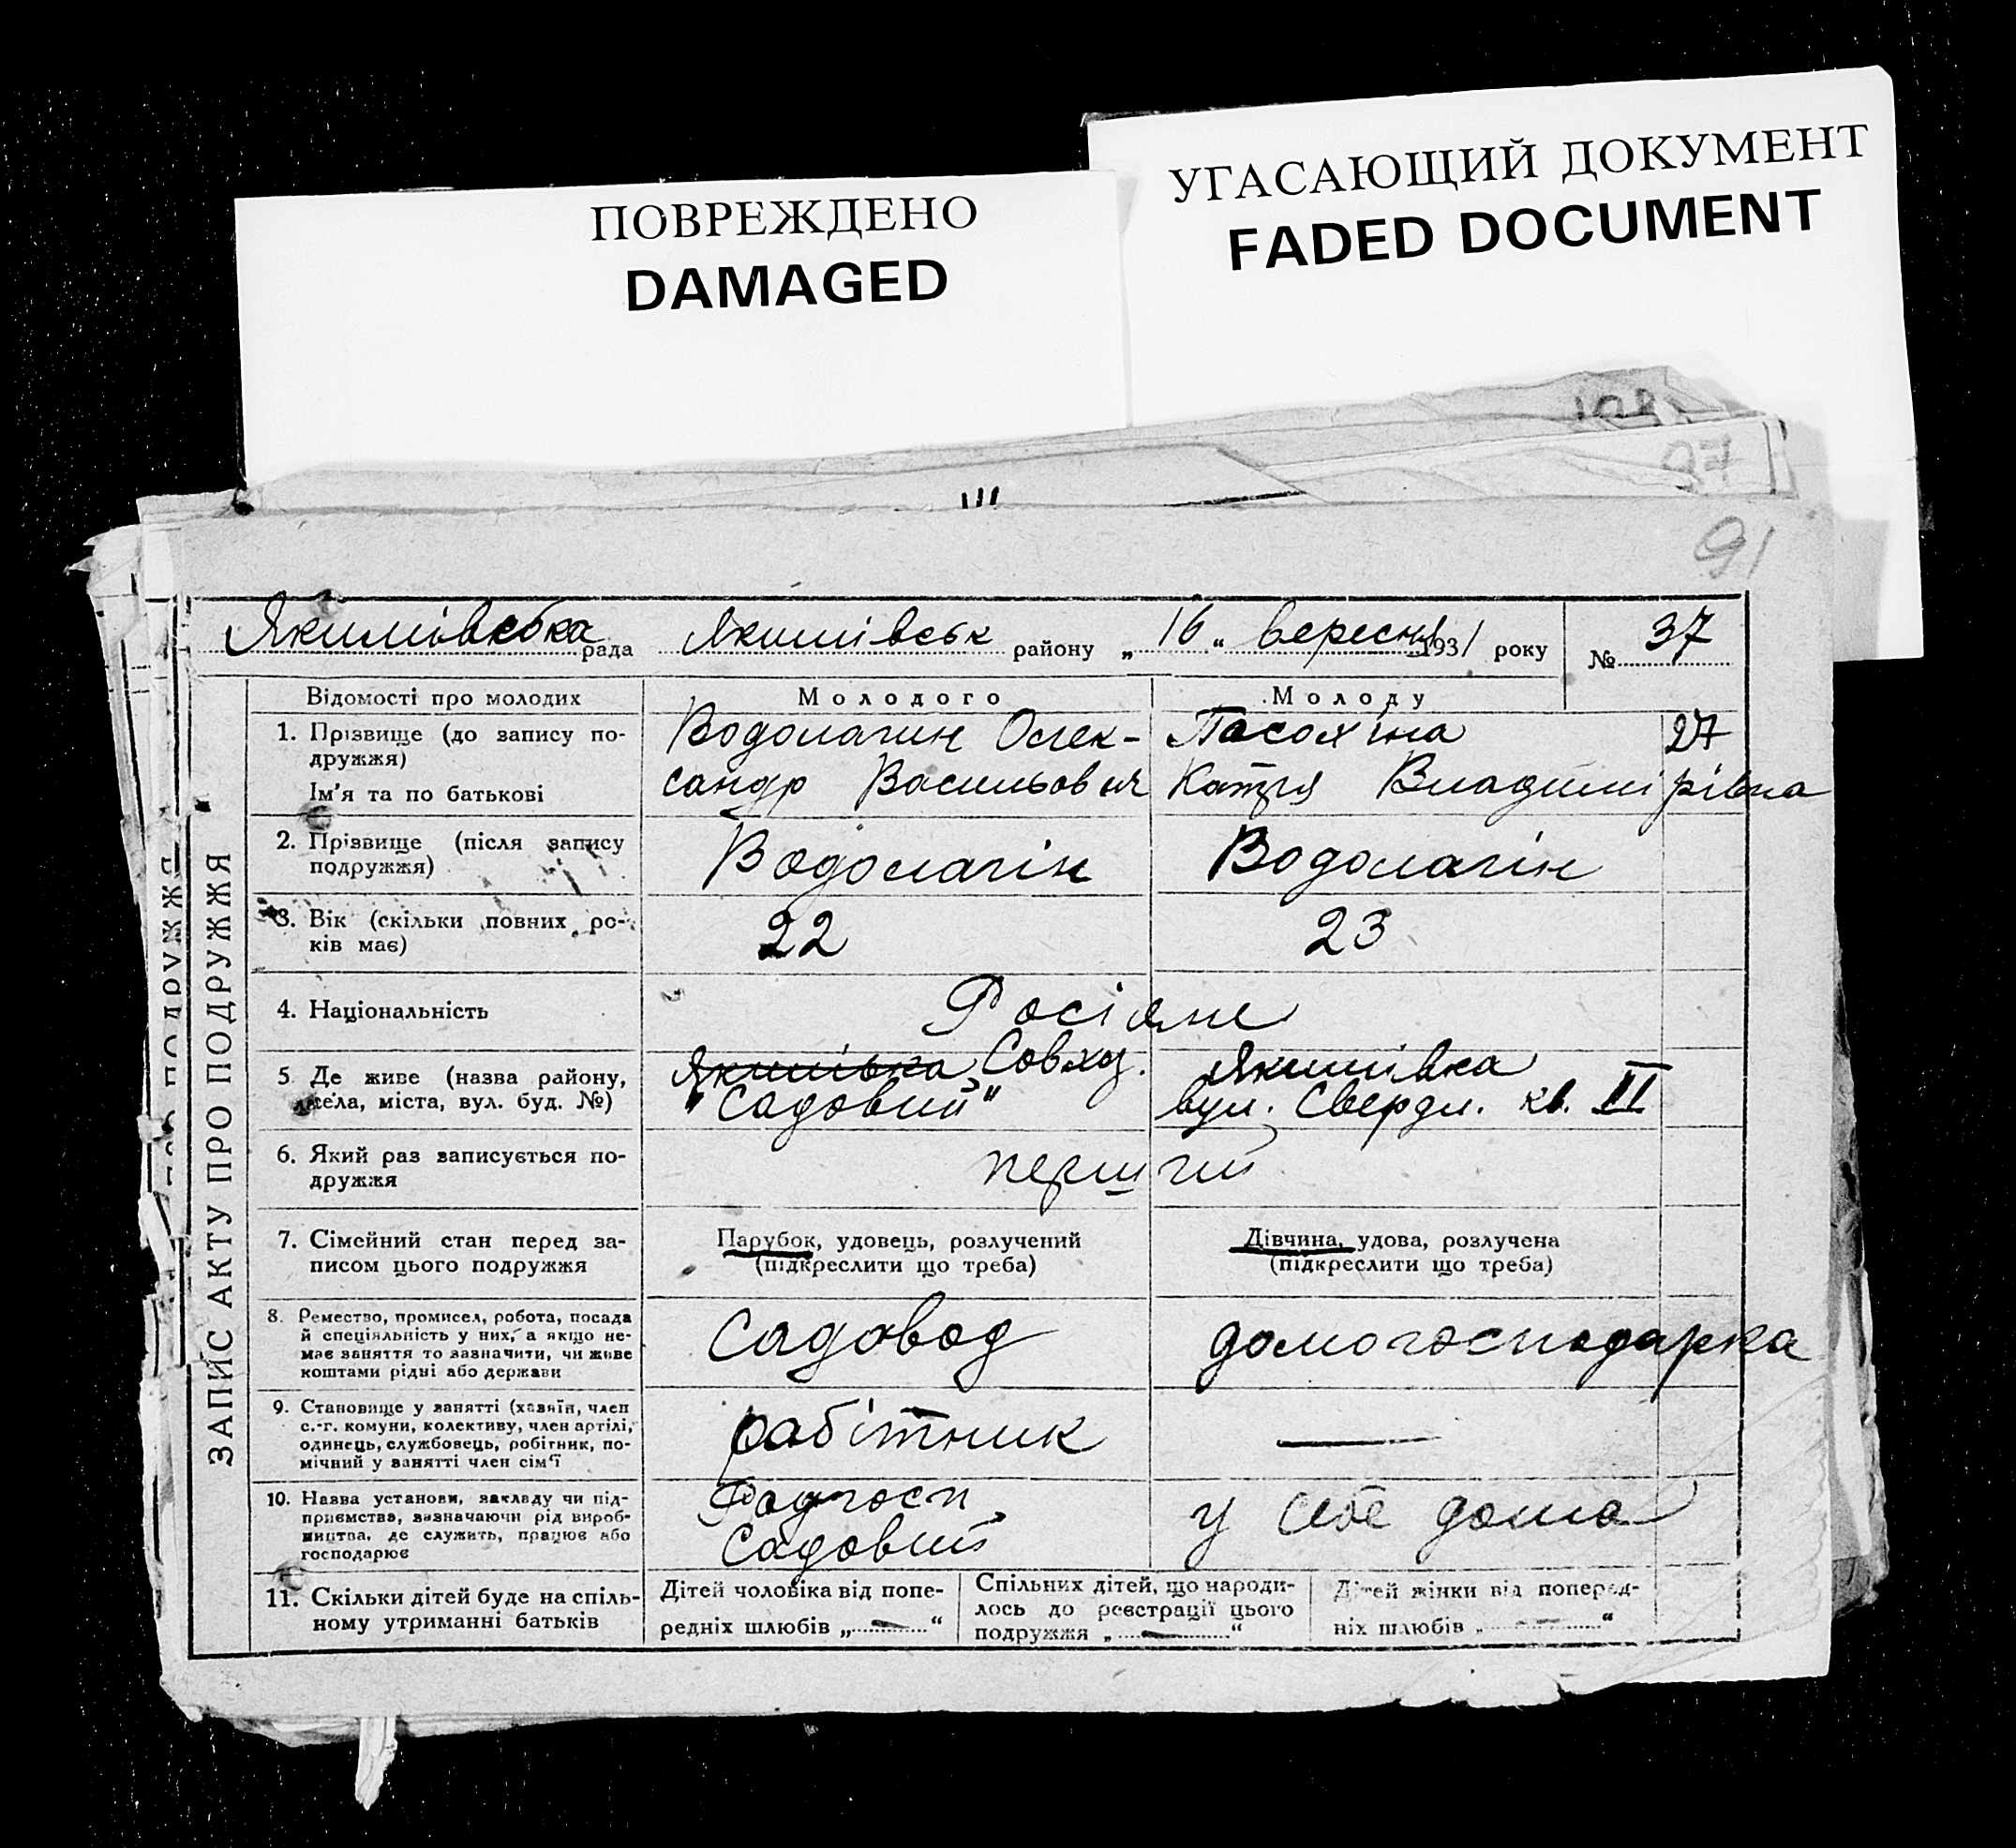 ПОВРЕЖДЕНО
DAMAGED
УГАСАЮЩИЙ ДОКУМЕНТ
FADED DOCUMENT
37
91
Якимівська рада Якимівськ району „ 16 “ вересня 1931 року № 37
ЗАПИС АКТУ ПРО ПОДРУЖЖЯ
Відомості про молодих
Молодого
Молоду
1. Прізвище (до запису по-
дружжя)
Ім'я та по батькові
Водолагин Олек-
сандр Васильович
Катря Владимірівна
27
2. Прізвище (після запису
подружжя)
Водолагін
Водолагін
3. Вік (скільки повних ро-
ків має)
22
23
4. Національність
Росіяне
5 Де живе (назва району,
села, міста, вул. буд. №)
Якимівка Совхоз.
"Садовий"
Якимівка
вул. Свердл. кв. II
6. Який раз записується по-
дружжя
перший
7. Сімейний стан перед за-
писом цього подружжя
Парубок, удовець, розлучений
(підкреслити що треба)
Дівчина, удова, розлучена
(підкреслити що треба)
8. Ремество, промисел, робота, посада
й спеціяльність у них, а якщо не-
має заняття то зазначити, чи живе
коштами рідні або держави
садовод
домогосподарка
9. Становище у занятті (хазяїн, член
с.-г. комуни, колективу, член артілі,
одинець, службовець, робітник, по-
мічний у занятті член сім'ї
рабітник
10. Назва установи, закладу чи під-
приємства, зазначаючи рід вироб-
ництва, де служить, працює або
господарює
Радгосп
Садовий
у себе дома
11. Скільки дітей буде на спіль-
ному утриманні батьків
Дітей чоловіка від попе-
редніх шлюбів „ — “
Спільних дітей, що народи-
лось до реєстрації цього
подружжя „ — “
Дітей жінки від поперед-
ніх шлюбів „ — “